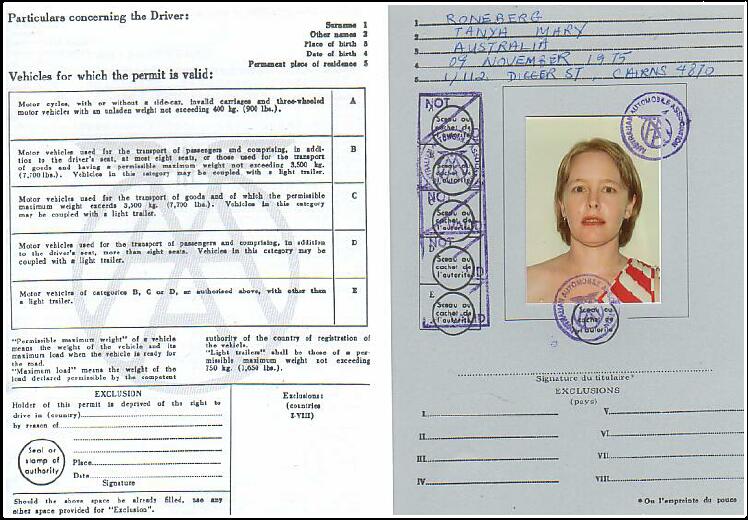 Particulars concerning the Driver:
Surname 1
Other names 2
Place of birth 3
Date of birth 4
Permanent place of residence 5
Vehicles for which the permit is valid:
Motor cycles, with or without a side-car, invalid carriages and three-wheeled
motor vehicles with an unladen weight not exceeding 400 kg. (900 lbs.).
A
Motor vehicles used for the transport of passengers and comprising, in addi-
tion to the driver's seat, at most eight seats, or those used for the transport
of goods and having a permissible maximum weight not exceeding 3,500 kg.
(7,700 lbs.). Vehicles in this category may be coupled with a light trailer.
B
Motor vehicles used for the transport of goods and of which the permissible
maximum weight exceeds 3,500 kg. (7,700 lbs.). Vehicles in this category
may be coupled with a light trailer.
C
Motor vehicles used for the transport of passengers and comprising, in addition
to the driver's seat, more than eight seats. Vehicles in this category may be
coupled with a light trailer.
D
Motor vehicles of categories B, C or D, as authorised above, with other than
a light trailer.
E
"Permissible maximum weight" of a vehicle
means the weight of the vehicle and its
maximum load when the vehicle is ready for
the road.
"Maximum load" means the weight of the
load declared permissible by the competent
authority of the country of registration of
the vehicle.
"Light trailers" shall be those of a per-
missible maximum weight not exceeding
750 kg. (1,650 lbs.).
EXCLUSION
Holder of this permit is deprived of the right to
drive in (country)
by reason of
Seal or
stamp of
authority
Place
Date
Signature
Should the above space be already filled, use any
other space provided for "Exclusion".
Exclusions:
(countries
I-VIII)
1 RONEBERG
2 TANYA MARY
3 AUSTRALIA
4 09 NOVEMBER 1975
5 1/112 DIGGER ST, CAIRNS 4870
NOT
Sceau ou
cachet de
l'autorité
Sceau ou
cachet de
l'autorité
Sceau ou
Sceau ou
cachet de
l'autorité
E
Sceau ou
cachet de
l'autorité
AUSTRALIAN AUTOMOBILE ASSOCIATION
AUSTRALIAN AUTOMOBILE
Sceau ou
cachet de
l'autorité
Signature du titulaire*
EXCLUSIONS
(pays)
I.
II.
III.
IV.
V.
VI.
VII.
VIII.
*Ou l'empreinte du pouce